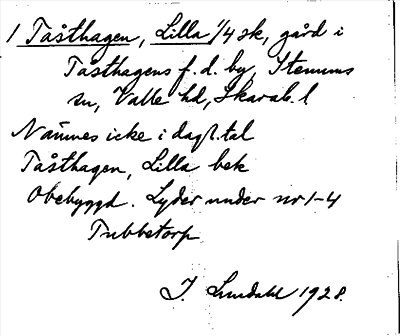 1 Tåsthagen, Lilla 1/4 sk, gård i
Tåsthagens f. d. by, Stenums
sn, Valle hd, Skarab. l
Nämnes icke i dagl. tal
Tåsthagen, Lilla bek
Obebyggd. Lyder under nr 1-4
Tubbetorp
J. Lundahl 1928.